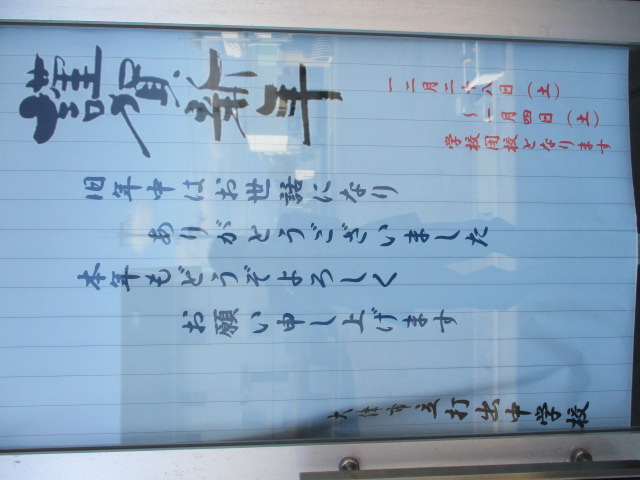 謹賀新年
十二月二十八日（土）
～一月四日（土）
学校閉校となります
旧年中はお世話になり
ありがとうございました
本年もどうぞよろしく
お願い申し上げます
大津市立打出中学校